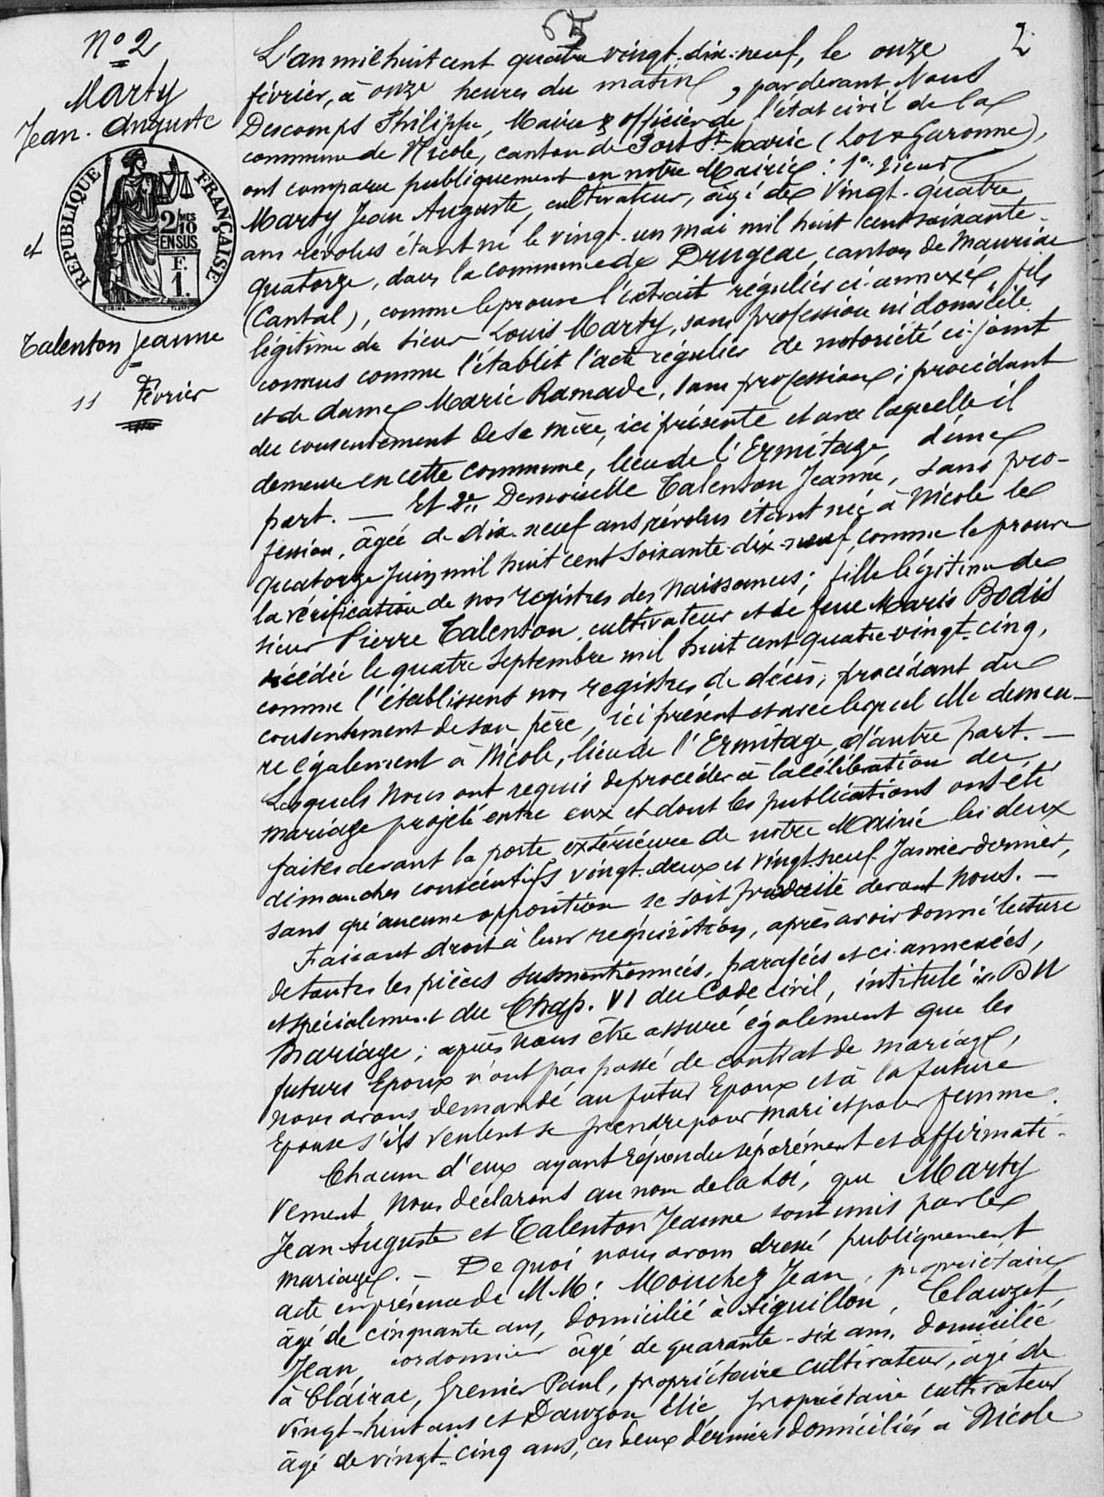 5
2
N° 2
Marty
Jean-Auguste
RÉPUBLIQUE FRANÇAISE
2/10MES
EN SUS
F.
1.
et
Talenton Jeanne
11 Février
L'an mil huit cent quatre vingt-dix-neuf, le onze
février, à onze heures du matin, par devant Nous
Descomps Philippe, Maire & officier de l'état civil de la
commune de Nicole, canton de Port Ste Marie (Lot & Garonne),
ont comparu publiquement en notre Mairie: 1° Sieur
Marty Jean Auguste, cultivateur, âgé de vingt-quatre
ans révolus étant né le vingt-un mai mil huit cent soixante-
quatorze, dans la commune de Drugeac, canton de Mauriac
(Cantal), comme le prouve l'extrait régulier ci-annexé, fils
légitime de sieur Louis Marty, sans profession ni domicile
connus comme l'établit l'acte régulier de notoriété ci-joint
et de dame Marie Ramade, sans profession; procédant
du consentement de sa mère, ici présente et avec laquelle il
demeure en cette commune, lieu de l'Ermitage, d'une
part. — Et 2° Demoiselle Talenton Jeanne, sans pro-
fession, âgée de dix-neuf ans révolus étant née à Nicole le
quatorze Juin mil huit cent soixante-dix-neuf, comme le prouve
la vérification de nos registres des naissances; fille légitime de
sieur Pierre Talenton, cultivateur et de feue Marie Bodis
décédée le quatre Septembre mil huit cent quatre-vingt-cinq,
comme l'établissent nos registres de décès; procédant du
consentement de son père, ici présent et avec lequel elle demeu-
re également à Nicole, lieu de l'Ermitage, d'autre part. —
Lesquels Nous ont requis de procéder à la célébration du
mariage projeté entre eux et dont les publications ont été
faites devant la porte extérieure de notre Mairie les deux
dimanches consécutifs vingt-deux et vingt-neuf Janvier dernier,
sans qu'aucune opposition se soit produite devant Nous. —
Faisant droit à leur réquisition, après avoir donné lecture
de toutes les pièces susmentionnées, parafées et ci-annexées,
et spécialement du Chap. VI du Code civil, intitulé: Du
Mariage; après nous être assuré également que les
futurs Epoux n'ont pas passé de contrat de mariage,
nous avons demandé au futur Epoux et à la future
Epouse s'ils veulent se prendre pour mari et pour femme.
Chacun d'eux ayant répondu séparément et affirmati-
vement Nous déclarons au nom de la loi, que Marty
Jean Auguste et Talenton Jeanne sont unis par le
mariage. — De quoi nous avons dressé publiquement
acte en présence de M.M: Mouchez Jean, propriétaire
âgé de cinquante ans, domicilié à Aiguillon, Clauzet
Jean cordonnier âgé de quarante-six ans, domicilié
à Clairac, Grenier Paul, propriétaire cultivateur, âgé de
vingt-huit ans et Dauzon Elie propriétaire cultivateur
âgé de vingt-cinq ans, ces deux derniers domiciliés à Nicole